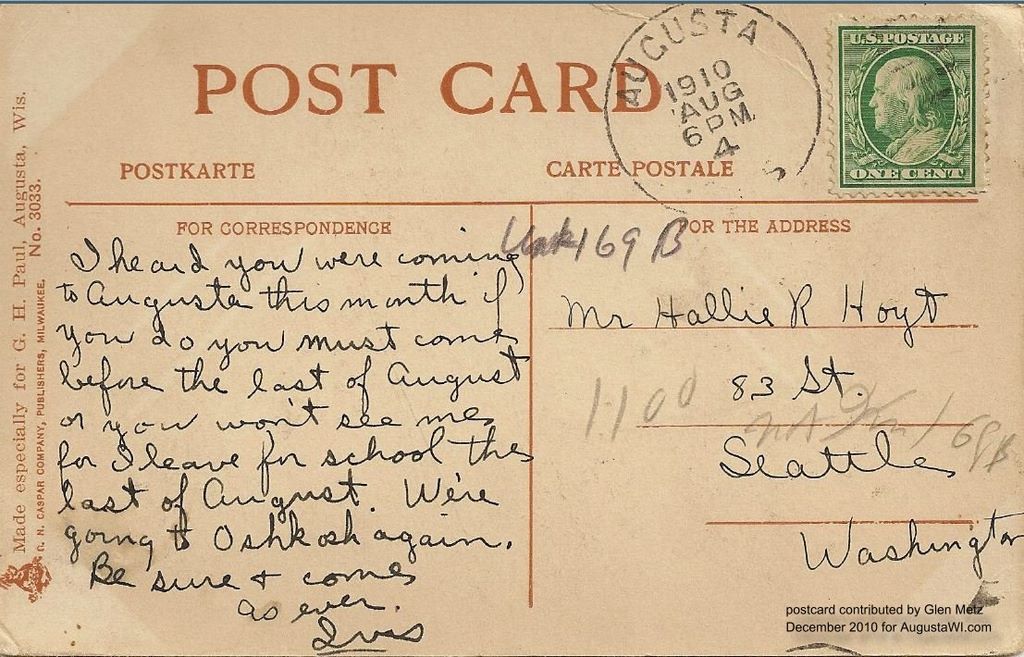 POST CARD
AUGUSTA
1910
AUG
6 PM
4
U.S. POSTAGE
ONE CENT
POSTKARTE
CARTE POSTALE
FOR CORRESPONDENCE
FOR THE ADDRESS
169 B
I heard you were coming
to Augusta this month if
you do you must come
before the last of August
or you won't see me
for I leave for school the
last of August. We're
going to Oshkosh again.
Be sure & come
as ever.
Mr Hallie R Hoyt
83 St.
1100
Seattle
Washington
Made especially for G. H. Paul, Augusta, Wis.
No. 3033.
E. N. CASPAR COMPANY, PUBLISHERS, MILWAUKEE.
postcard contributed by Glen Metz
December 2010 for AugustaWI.com